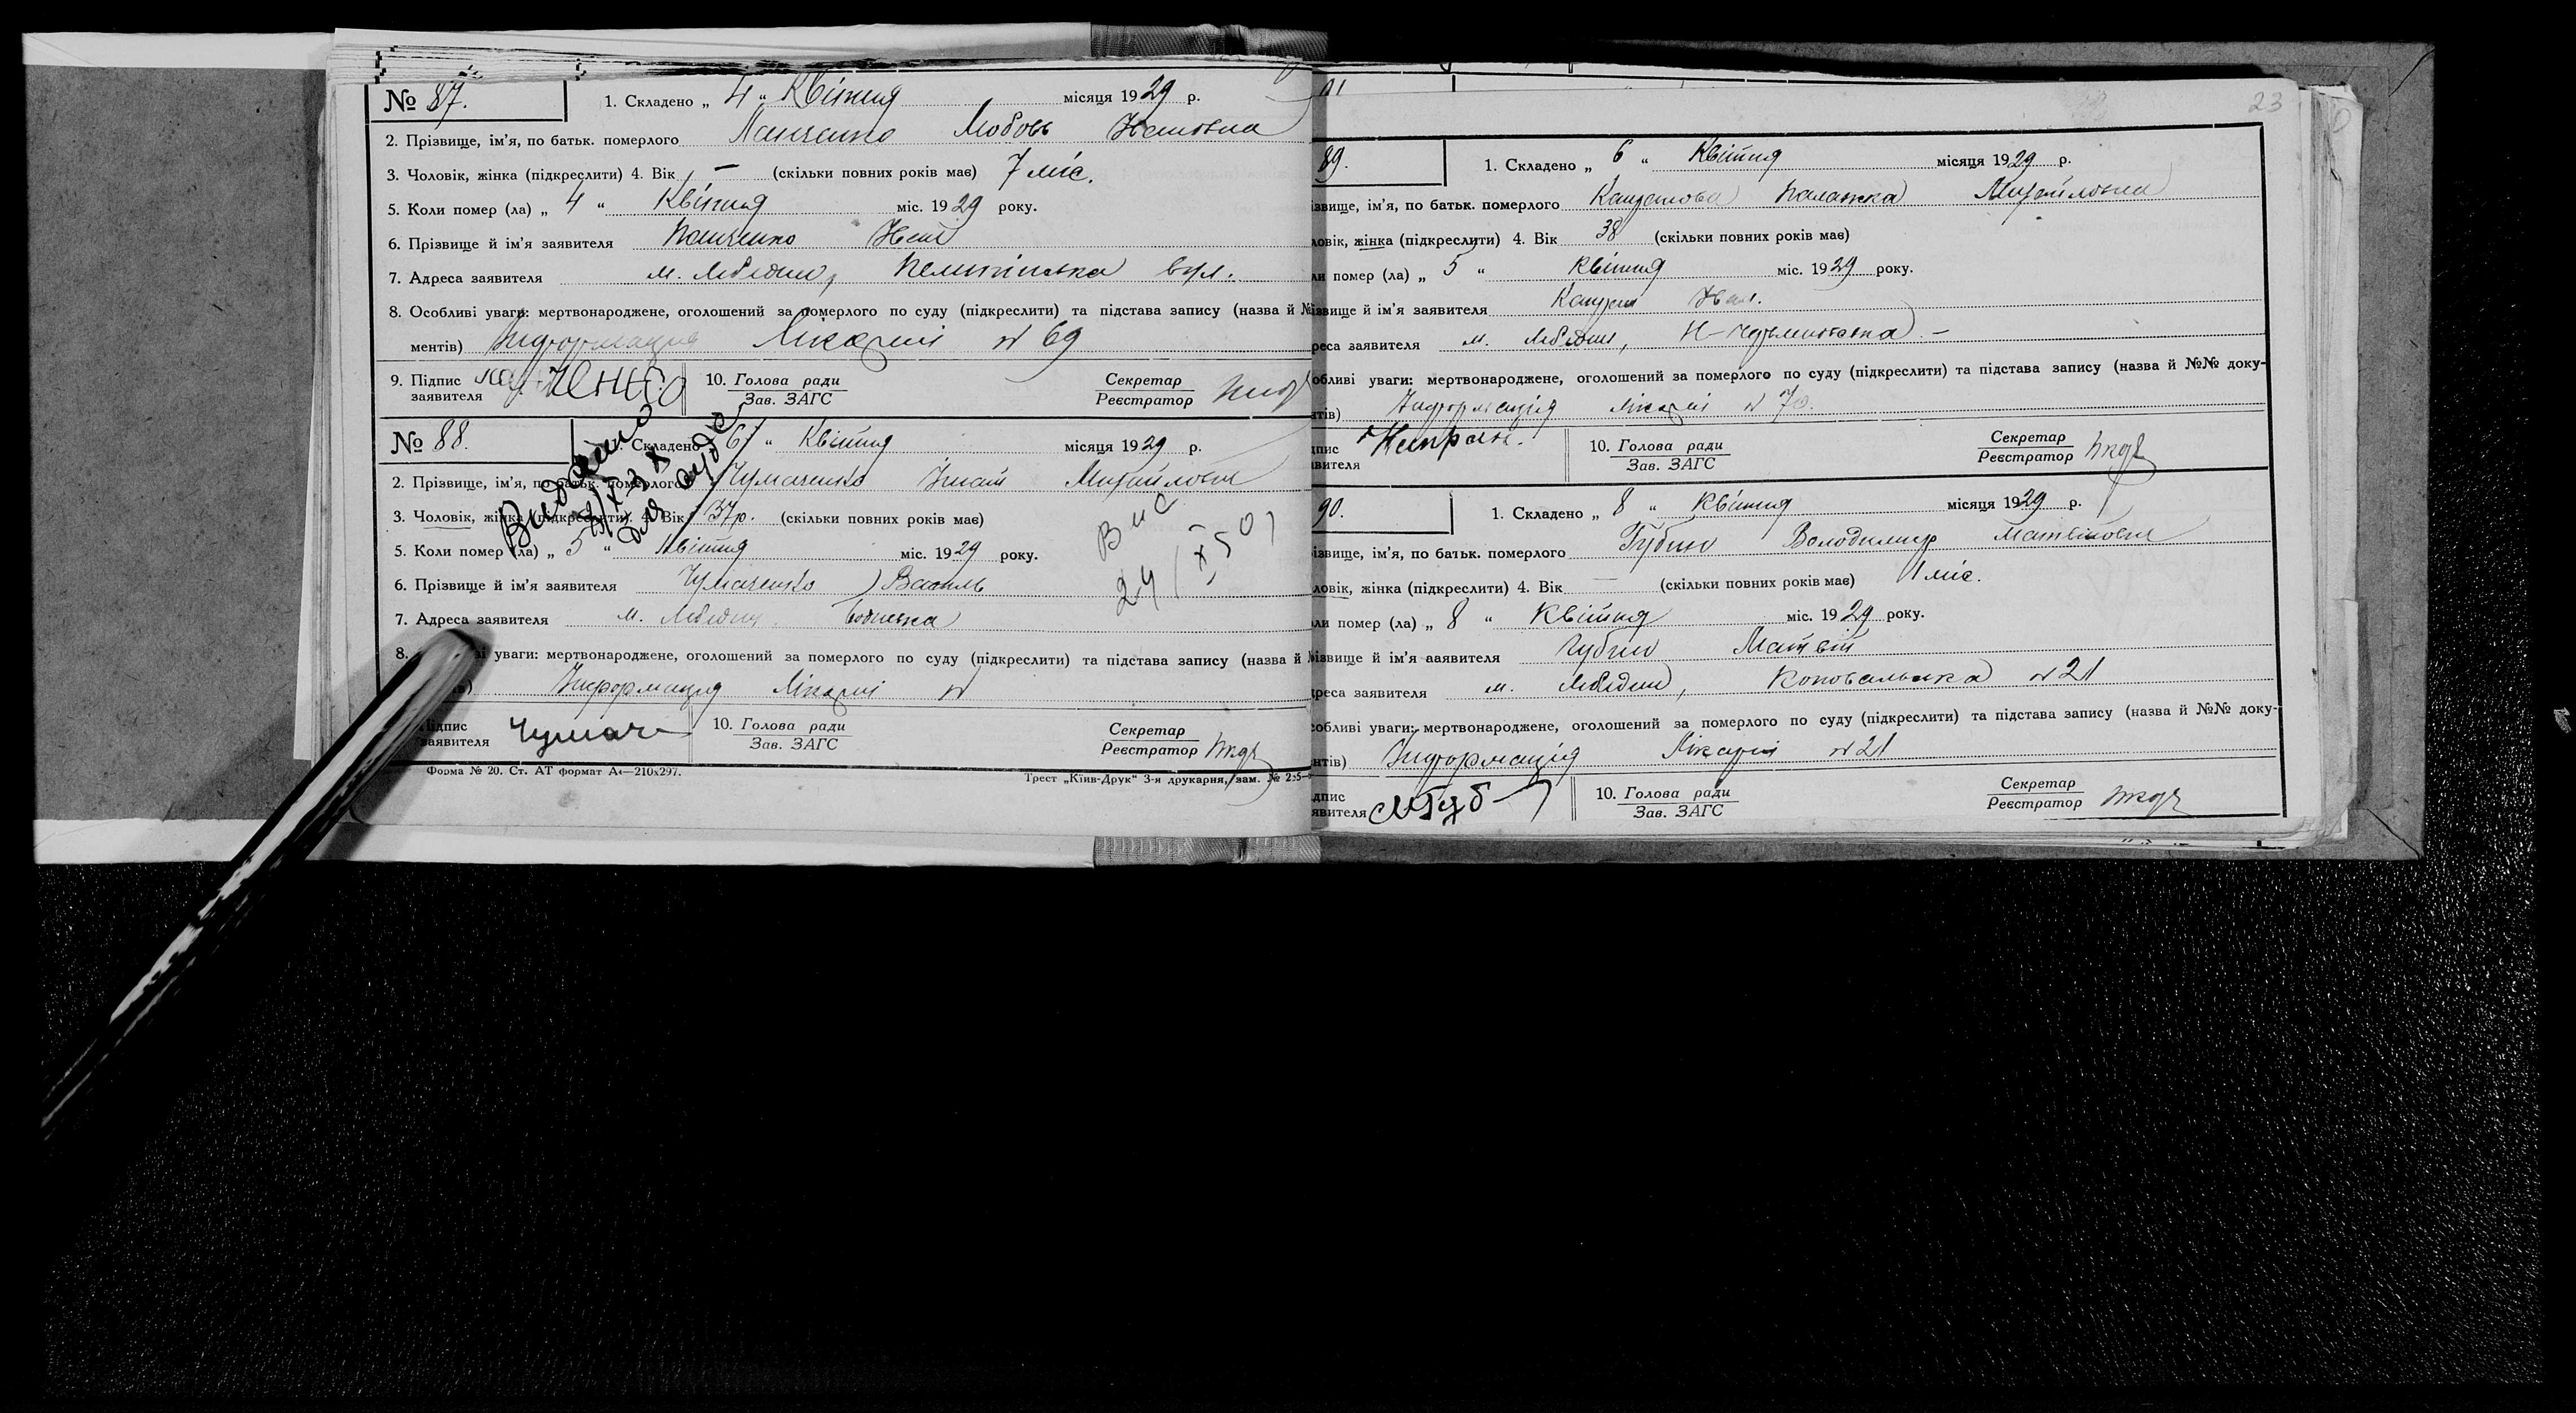 № 87. 1. Складено „ 4 “ Квітня місяця 1929 р.
2. Прізвище, ім'я, по батьк. померлого Панченко Любовь Ивановна
3. Чоловік, жінка (підкреслити) 4. Вік — (скільки повних років має) 7 міс.
5. Коли помер (ла) „ 4 “ Квітня міс. 1929 року.
6. Прізвище й ім'я заявителя Панченко Иван
7. Адреса заявителя м. Лебедин, вул.
8. Особливі уваги: мертвонароджене, оголошений за померлого по суду (підкреслити) та підстава запису (назва й №
ментів) Информация Лікарні № 69
9. Підпис заявителя 10. Голова ради Зав. ЗАГС Секретар Реєстратор
№ 88. Складено „ 6 “ Квітня місяця 1929 р.
2. Прізвище, ім'я, по батьк. померлого Чумаченко Игнат Михайлович
3. Чоловік, жінка (підкреслити) 4. Вік 37 р. (скільки повних років має)
5. Коли помер (ла) „ 5 “ Квітня міс. 1929 року.
6. Прізвище й ім'я заявителя Чумаченко Василь
7. Адреса заявителя м. Лебедин
8. уваги: мертвонароджене, оголошений за померлого по суду (підкреслити) та підстава запису (назва й
Информация Лікарні №
Підпис заявителя Чумач 10. Голова ради Зав. ЗАГС Секретар Реєстратор
Форма № 20. Ст. АТ формат А4—210х297. Трест „Київ-Друк“ 3-я друкарня, зам. №
23
89. 1. Складено „ 6 “ Квітня місяця 1929 р.
звище, ім'я, по батьк. померлого Палажка Михайловна
ловік, жінка (підкреслити) 4. Вік 38 (скільки повних років має)
ли помер (ла) „ 5 “ Квітня міс. 1929 року.
звище й ім'я заявителя Иван.
реса заявителя м. Лебедин,
обливі уваги: мертвонароджене, оголошений за померлого по суду (підкреслити) та підстава запису (назва й №№ доку-
нтів) Информація лікарні № 70.
дпис явителя 10. Голова ради Зав. ЗАГС Секретар Реєстратор
90. 1. Складено „ 8 “ Квітня місяця 1929 р.
ізвище, ім'я, по батьк. померлого Губин Володимир Матвійович
ловік, жінка (підкреслити) 4. Вік — (скільки повних років має) 1 міс.
ли помер (ла) „ 8 “ Квітня міс. 1929 року.
ізвище й ім'я аявителя Губин Матвій
реса заявителя м. Лебедин, Коновальська № 21
собливі уваги: мертвонароджене, оголошений за померлого по суду (підкреслити) та підстава запису (назва й №№ доку-
нтів) Информація Лікарні № 21
дпис явителя МГуб 10. Голова ради Зав. ЗАГС Секретар Реєстратор